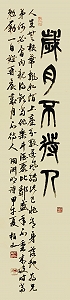 歲月不待人
人生無根蒂飄如陌上塵分散逐風轉此已非常身落地為兄
弟何必骨肉親得歡當作樂斗酒聚比鄰盛年不重來一日
難再晨及時當勉勵歲月不待人陶淵明詩甲午夏